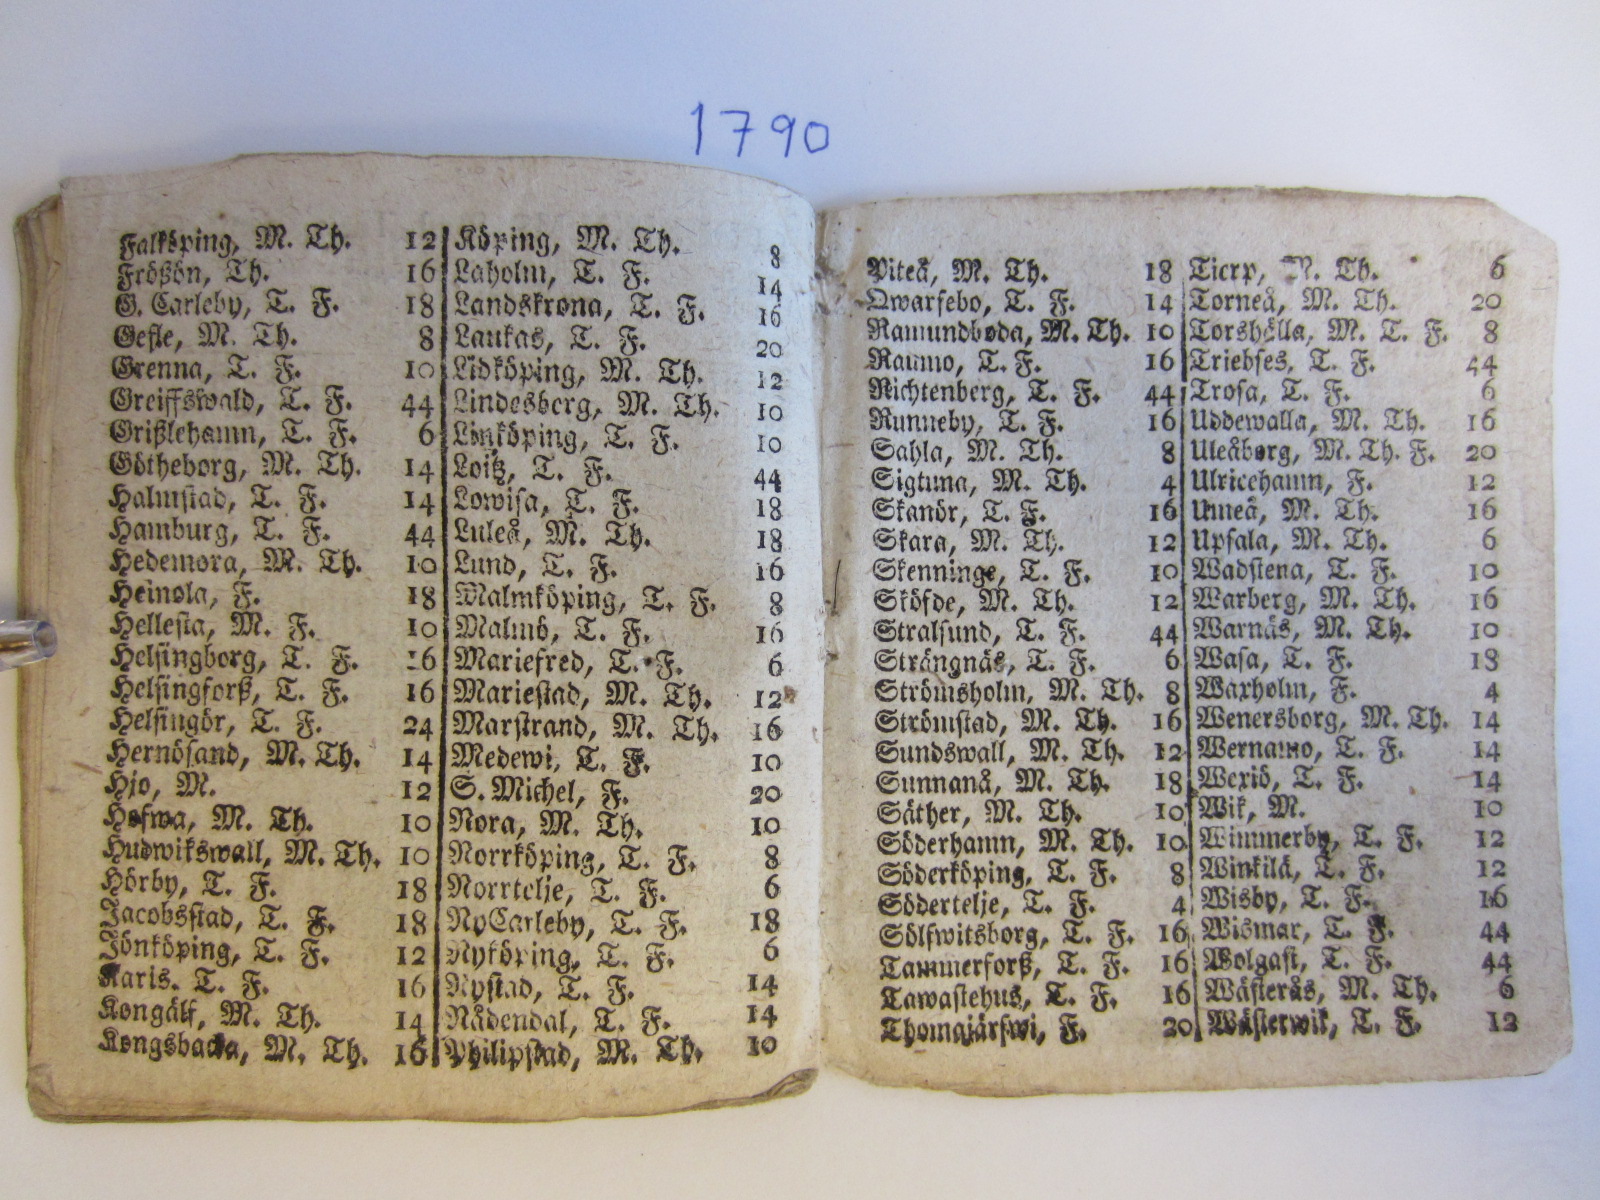 1790
Falköping, M. Th. 12
Frößön, Th. 16
G. Carleby, T. F. 18
Gefle, M. Th. 8
Grenna, T. F. 10
Greiffswald, T. F. 44
Grißlehamn, T. F. 6
Götheborg, M. Th. 14
Halmstad, T. F. 14
Hamburg, T. F. 44
Hedemora, M. Th. 10
Heinola, F. 18
Hellesta, M. F. 10
Helsingborg, T. F. 16
Helsingforß, T. F. 16
Helsingör, T. F. 24
Hernösand, M. Th. 14
Hjo, M. 12
Hofwa, M. Th. 10
Hudwikswall, M. Th. 10
Hörby, T. F. 18
Jacobsstad, T. F. 18
Jönköping, T. F. 12
Karis. T. F. 16
Kongälf, M. Th. 14
Kongsbacka, M. Th. 16
Köping, M. Th. 8
Laholm, T. F. 14
Landskrona, T. F. 16
Laukas, T. F. 20
Lidköping, M. Th. 12
Lindesberg, M. Th. 10
Linköping, T. F. 10
Loitz, T. F. 44
Lowisa, T. F. 18
Luleå, M. Th. 18
Lund, T. F. 16
Malmköping, T. F. 8
Malmö, T. F. 16
Mariefred, T. F. 6
Mariestad, M. Th. 12
Marstrand, M. Th. 16
Medewi, T. F. 10
S. Michel, F. 20
Nora, M. Th. 10
Norrköping, T. F. 8
Norrtelje, T. F. 6
NyCarleby, T. F. 18
Nyköping, T. F. 6
Nystad, T. F. 14
Nådendal, T. F. 14
Philipstad, M. Th. 10
Piteå, M. Th. 18
Qwarsebo, T. F. 14
Ramundboda, M. Th. 10
Raumo, T. F. 16
Richtenberg, T. F. 44
Runneby, T. F. 16
Sahla, M. Th. 8
Sigtuna, M. Th. 4
Skanör, T. F. 16
Skara, M. Th. 12
Skenninge, T. F. 10
Sköfde, M. Th. 12
Stralsund, T. F. 44
Strängnäs, T. F. 6
Strömsholm, M. Th. 8
Strömstad, M. Th. 16
Sundswall, M. Th. 12
Sunnanå, M. Th. 18
Säther, M. Th. 10
Söderhamn, M. Th. 10
Söderköping, T. F. 8
Södertelje, T. F. 4
Sölfwitsborg, T. F. 16
Tammerforß, T. F. 16
Tawastehus, T. F. 16
Thomajärfwi, F. 20
Tierp, M. Th. 6
Torneå, M. Th. 20
Torshälla, M. T. F. 8
Triebses, T. F. 44
Trosa, T. F. 6
Uddewalla, M. Th. 16
Uleåborg, M. Th. F. 20
Ulricehamn, F. 12
Umeå, M. Th. 16
Upsala, M. Th. 6
Wadstena, T. F. 10
Warberg, M. Th. 16
Warnäs, M. Th. 10
Wasa, T. F. 18
Waxholm, F. 4
Wenersborg, M. Th. 14
Wernamo, T. F. 14
Wexiö, T. F. 14
Wik, M. 10
Wimmerby, T. F. 12
Winkilä, T. F. 12
Wisby, T. F. 16
Wismar, T. F. 44
Wolgast, T. F. 44
Wästerås, M. Th. 6
Wästerwik, T. F. 12